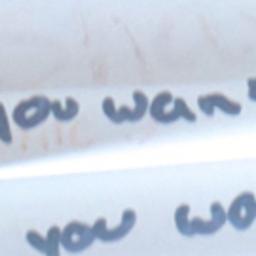 you wan
you wo